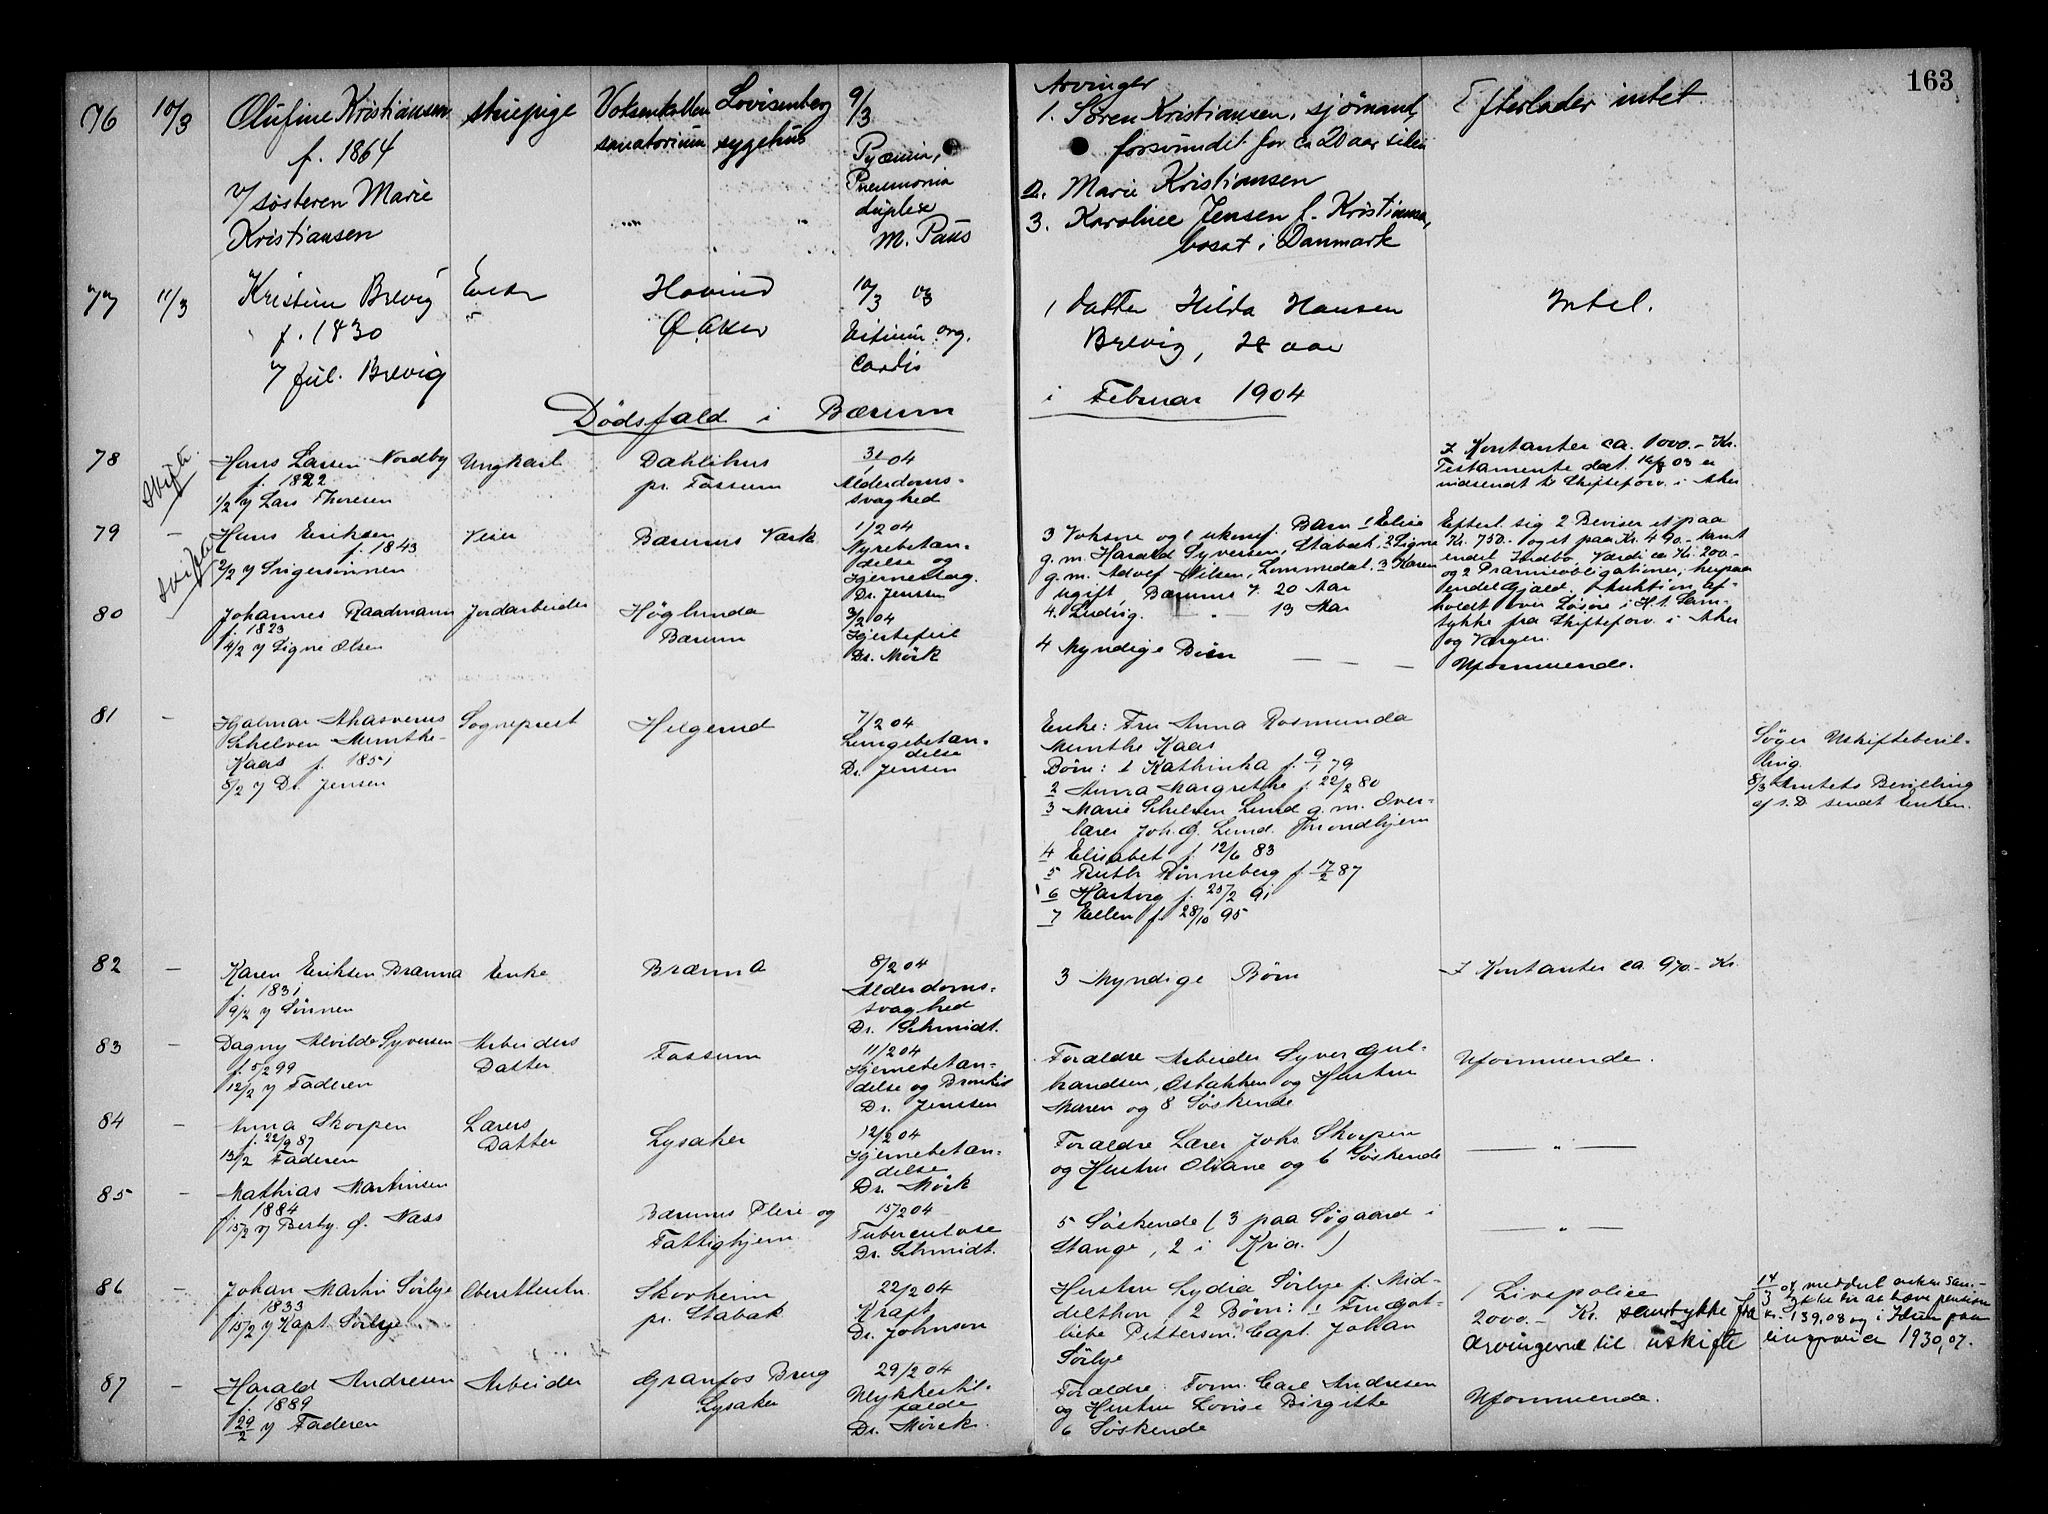 163
76
10/3
Olufine Kristiansen
f. 1864
v/ søsteren Marie
Kristiansen
stuepige
Voksenkollen
sanatorium
Lovisenberg
sygehus
9/3
Pyæmia,
Pneumonia
duplex
M. Paus
Arvinger
1. Søren Kristiansen, sjømand,
forsvundet for ca 20 aar siden
2. Marie Kristiansen
3. Karoline Jensen f. Kristiansen,
bosat i Danmark
Efterlader intet
77
11/3
Kristine Brevig
f. 1830
v/ Jul. Brevig
Enke
Hovind
Ø. Aker
10/3 03
Vitium org.
cordis
1 datter Hilda Hansen
Brevig, 28 aar
Intet.
Dødsfald i Bærum
i Februar 1904
78
skifte
Hans Larsen Nordby
f. 1822
1/2 v/ Lars Thoresen
Ungkarl
Dahlihus
pr. Fossum
3/1 04
Alderdoms-
svaghed
I Kontanter ca. 1000.- Kr.
Testamente dat. 16/8 03 er
nedsendt til Skifteforv. i Aker
79
-
skifte
Hans Eriksen
f. 1843
2/2 v/ Svigersønnen
Veier
Bærums Værk
1/2 04
Nyrebetæn-
delse og
Hjerneslag.
Dr. Jensen
3 Voksne og 1 ukonf. Barn 1 Elise
g. m. Harald Syversen, Stabæk. 2 Signe
g. m. Adolf Nilsen, Lommedal. 3 Karen
ugift, Bærums V. 20 Aar
4. Ludvig. - " - 13 Aar
Efterl. sig 2 Beviser et paa
Kr. 750.- og et paa Kr. 490.- samt
endel Indbo, Værdi ca Kr. 200.-
og 2 Præmieobligationer, herpaa
endel Gjæld. Auktion af-
holdt over Løsøre i H. t. Sam-
tykke fra Skifteforv. i Aker
og Værgen.
80
-
Johannes Raadmann
f. 1823
4/2 v/ Signe Olsen
Jordarbeider
Høglunda
Bærum
3/2 04
Hjertefeil
Dr. Mörk
4 Myndige Börn
Uformuende.
81
-
Hjalmar Ahasverus
Schelven Munthe-
Kaas f. 1851
8/2 v/ Dr. Jensen
Sogneprest
Helgerud
7/2 04
Lungebetæn-
delse
Dr. Jensen
Enke: Fru Anna Rosmunda
Munthe Kaas
Børn: 1 Kathinka f. 9/1 79
2 Anna Margrethe f. 22/2 80
3 Marie Schelven Lund g. m. Over-
lærer Joh. G. Lund. Trondhjem
4 Elisabet f. 12/6 83
5 Ruth Rønneberg f. 17/2 87
6 Hartvig f. 25/2 91
7 Ellen f. 28/10 95
Søger Uskiftebevil-
ling.
8/3 Amtets Bevilling
af s. D. sendt Enken.
82
-
Karen Eriksen Brænna
f. 1831
9/2 v/ Sønnen
Enke
Brænna
8/2 04
Alderdoms-
svaghed
Dr. Schmidt.
3 Myndige Børn
I Kontanter ca. 970.- Kr.
83
-
Dagny Alvilde Syversen
f. 5/2 99
12/2 v/ Faderen
Arbeiders
Datter
Fossum
11/2 04
Hjernebetæn-
delse og Bronkit
Dr. Jenssen
Forældre Arbeider Syver Gul-
brandsen, Østakken og Hustru
Maren og 8 Søskende
Uformuende.
84
-
Anna Skorpen
f. 22/9 87
13/2 Faderen
Lærers
Datter
Lysaker
12/2 04
Hjernebetæn-
delse
Dr. Mörk
Forældre Lærer Johs. Skorpen
og Hustru Oliane og 6 Søskende
- " -
85
-
Mathias Martinsen
f. 1884
15/2 v/ Berby Ø. Næss
Bærums Pleie og
Fattighjem
15/2 04
Tuberculose
Dr. Schmidt.
5 Søskende (3 paa Søgaard i
Stange, 2 i Kria.)
- " -
86
-
Johan Martin Sörlye
f. 1833
15/2 v/ Kapt. Sörlye
Oberstleutn.
Skovheim
pr. Stabæk
22/2 04
Kræft
Dr. Johnson
Hustru Lydia Sörlye f. Mid-
delthon, 2 Børn: 1 Fru Got-
liebe Petterson. Capt. Johan
Sörlye
1 Livspolice
2000.- Kr. samtykke fra
arvingerne til uskifte
14/3 04 meddelt enken sam-
tykke til at hæve pension
kr. 139,08 og i Iduns paa
livspolice 1930,07.
87
-
Harald Andresen
f. 1889
29/2 v/ Faderen
Arbeider
Granfos Brug
Lysaker
29/2 04
Ulykkestil-
fælde
Dr. Mörck.
Forældre Form. Carl Andresen
og Hustru Lovise Birgitte
6 Søskende
Uformuende.